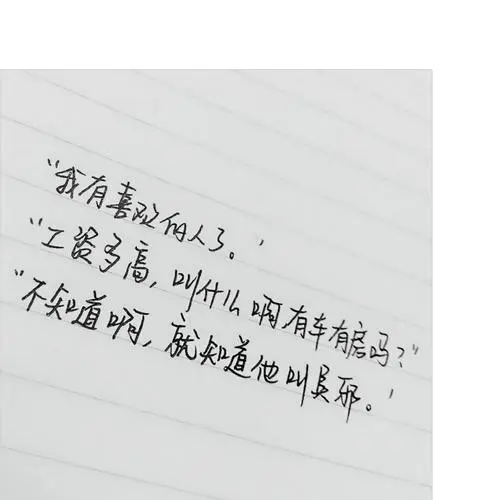 “我有喜欢的人了。’
“工资多高，叫什么啊有车有房吗？”
“不知道啊，就知道他叫吴邪。’